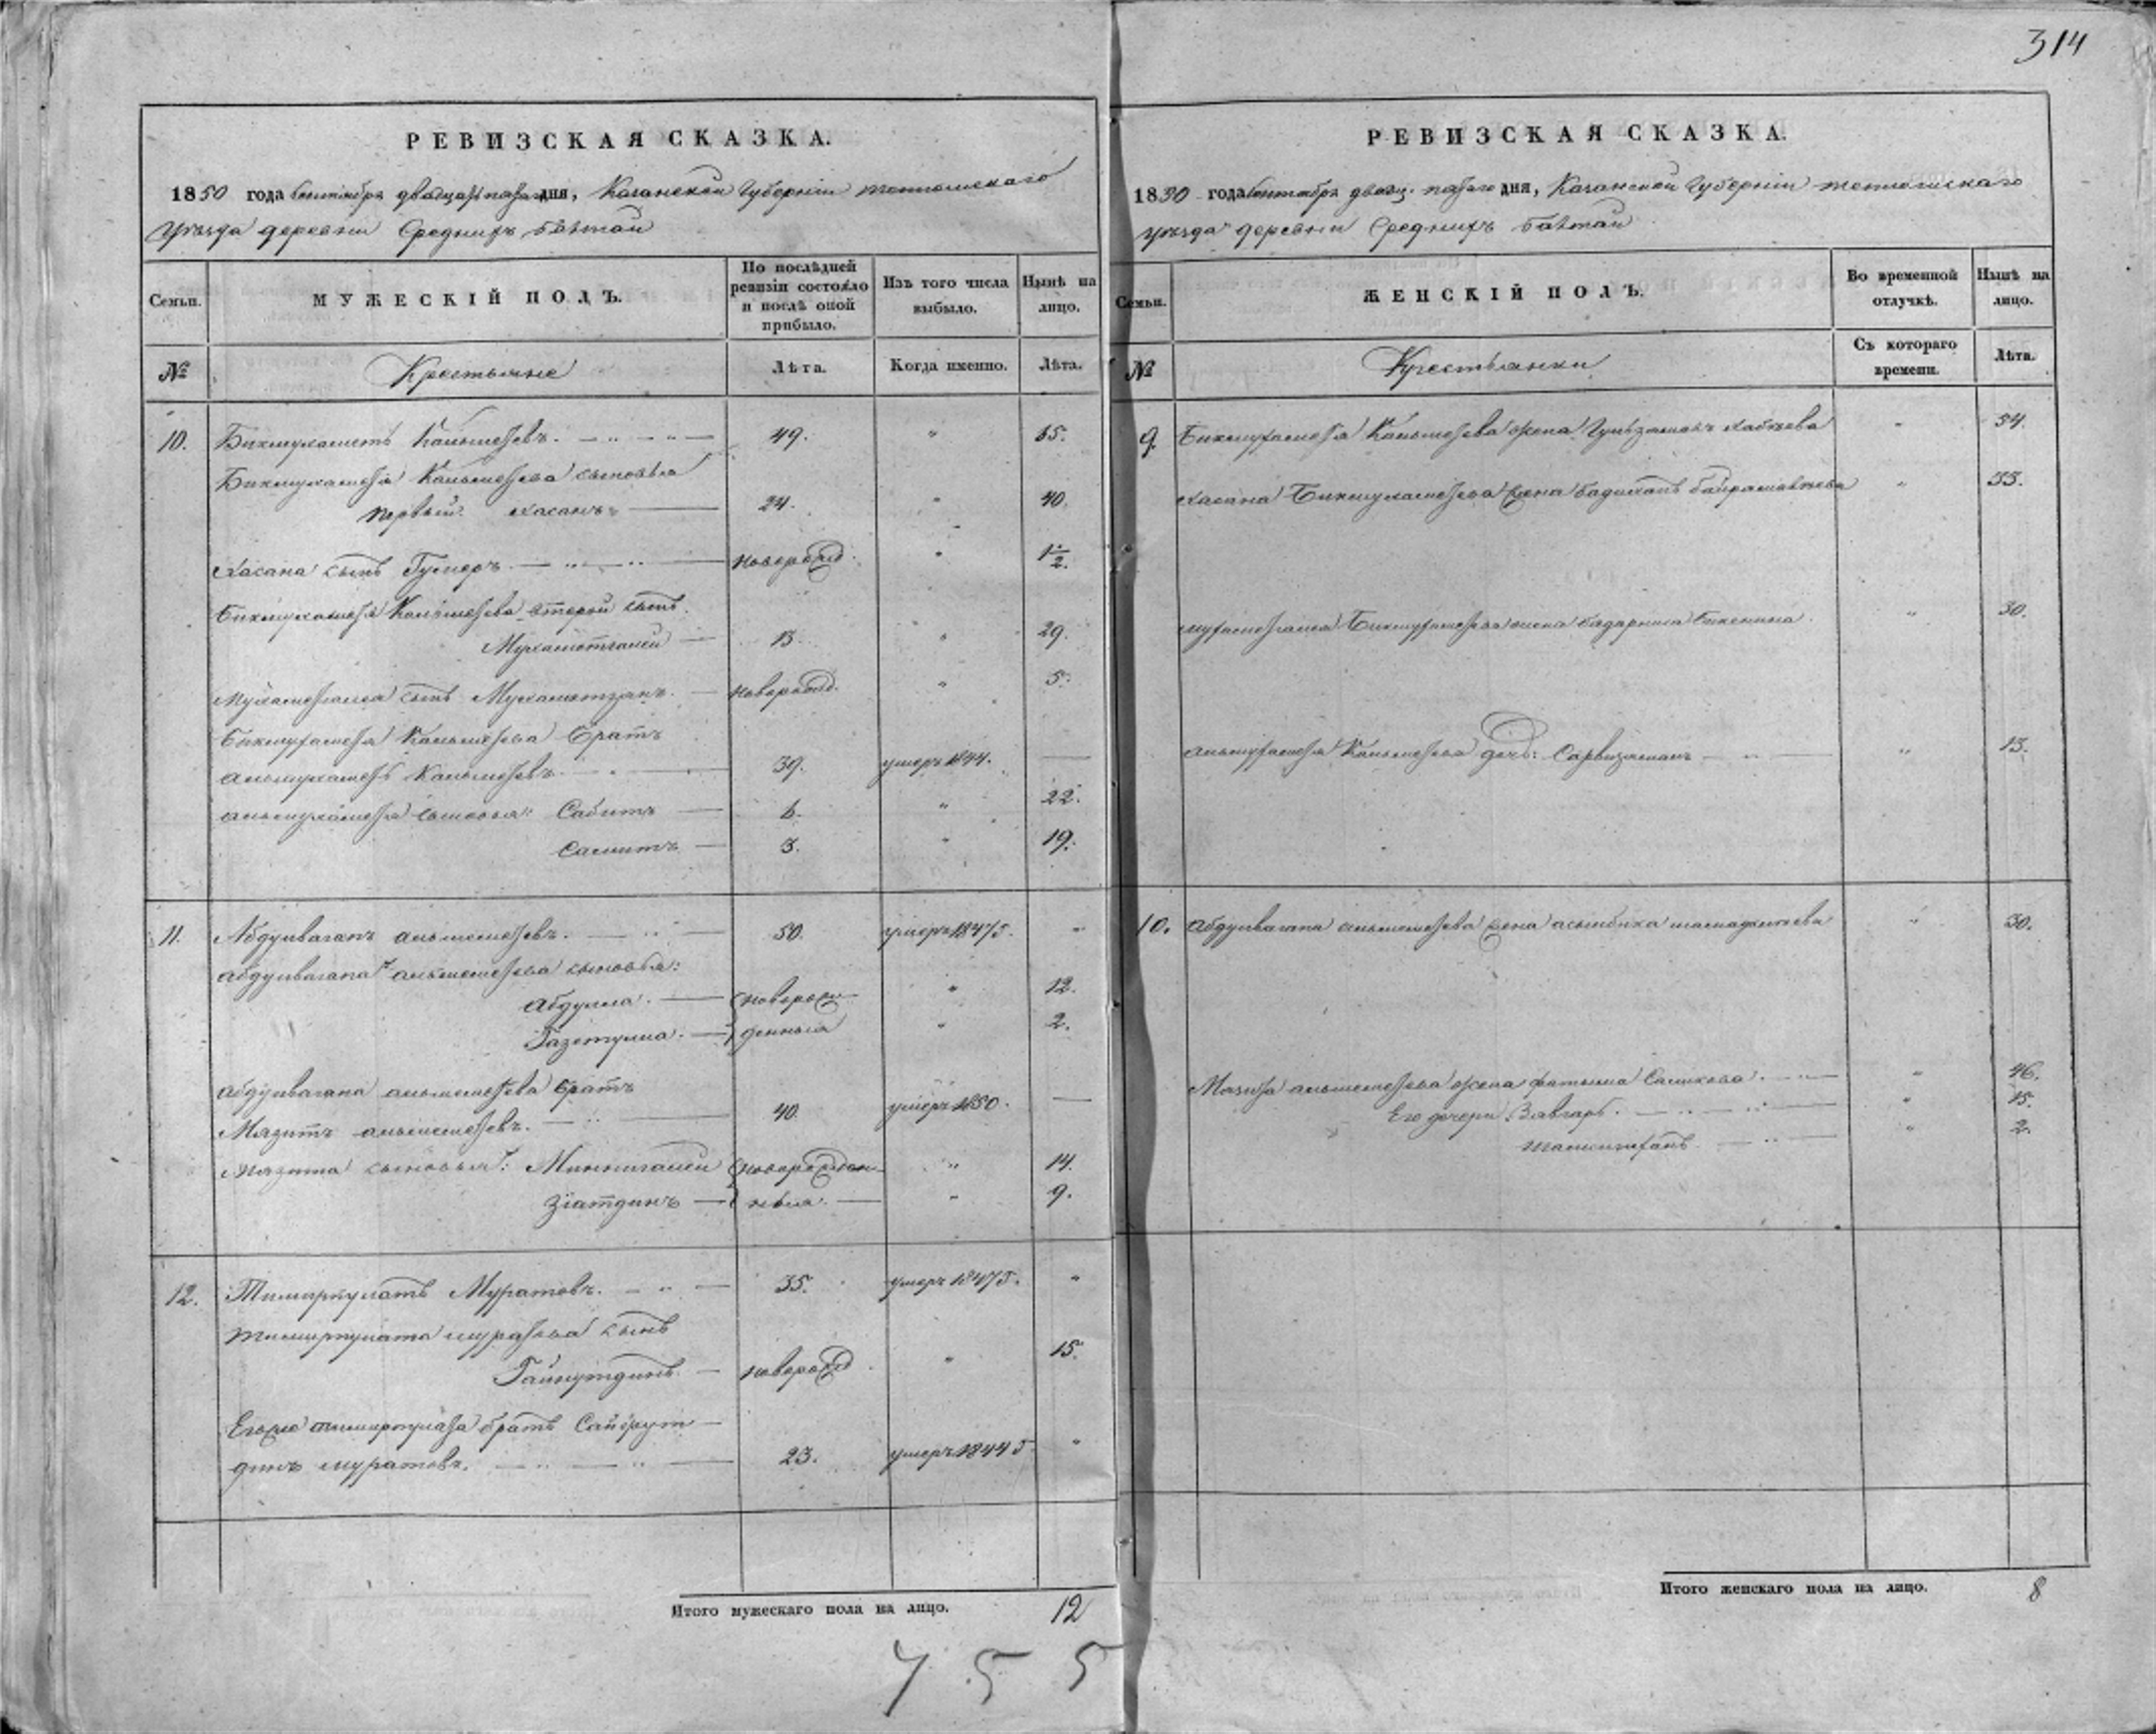 314
РЕВИЗСКАЯ СКАЗКА.
1850 года Сентября двадцать пятаго дня, Казанской Губерніи тетюшскаго
Уѣзда деревни Среднихъ Балтай
Семьи.
МУЖЕСКІЙ ПОЛЪ.
По послѣдней ревизіи состояло и послѣ оной прибыло.
Изъ того числа выбыло.
Нынѣ на лицо.
№
Крестьяне
Лѣта.
Когда именно.
Лѣта.
10. Бикмухаметъ Кальметьевъ. 49. " 65.
Бикмухаметя Кальметьева сыновья
первый Хасанъ 24. " 40.
Хасана сынъ Гумеръ новорожд. " 1/2.
Бикмухаметя Кальметьева второй сынъ
Мухаметгалей 13 " 29.
Мухаметгалея сынъ Мухаметзянъ. новорожд. " 5.
Бикмухаметя Кальметьева братъ
альмухаметь Кальметьевъ. 39. умеръ 1844.
альмухаметя сыновья: Сабитъ 6. " 22.
Самитъ 3. " 19.
11. Абдулваганъ альмеметьевъ. 50. умеръ 1847. "
абдулвагапа альмеметьева сыновья:
абдулла. новорож " 12.
Газетулла. денныя " 2.
абдулвагапа альмеметьева братъ
Мязитъ альмеметьевъ. 40. умеръ 1850.
Мязита сыновья: Миннигалей новорожден " 14.
Зіатдинъ ныя " 9.
12. Тимирбулатъ Муратовъ. 35. умеръ 1847. "
тимирбулата муратова сынъ
Гайнутдинъ новорожд " 15.
Егоже тимирбулата братъ Сайфут
динъ муратовъ. 23. умеръ 1844 "
Итого мужескаго пола на лицо. 12
755
РЕВИЗСКАЯ СКАЗКА.
1850 года Сентября двадц. пятаго дня, Казанской Губерніи тетюшскаго
уѣзда деревни Среднихъ Балтай
Семьи.
ЖЕНСКІЙ ПОЛЪ.
Во временной отлучкѣ.
Нынѣ на лицо.
№
Крестьянки
Съ котораго времени.
Лѣта.
9. Бикмухаметя Кальметьева жена Гульзямалъ Хабѣева " 54.
Хасана Бикмухаметьева жена бадиханъ байрамовнева " 33.
мухаметгалея Бикмухаметьева жена бадарниса бикенина. " 30.
альмухаметя Кальметьева дочь: Сарвизяманъ " 13.
10. абдулвагапа альмеметьева жена асылбика " 30.
Мязита альмеметьева жена фатыма Салихова. " 46.
Его дочери: Завгарь. " 15.
" 2.
Итого женскаго пола на лицо. 8